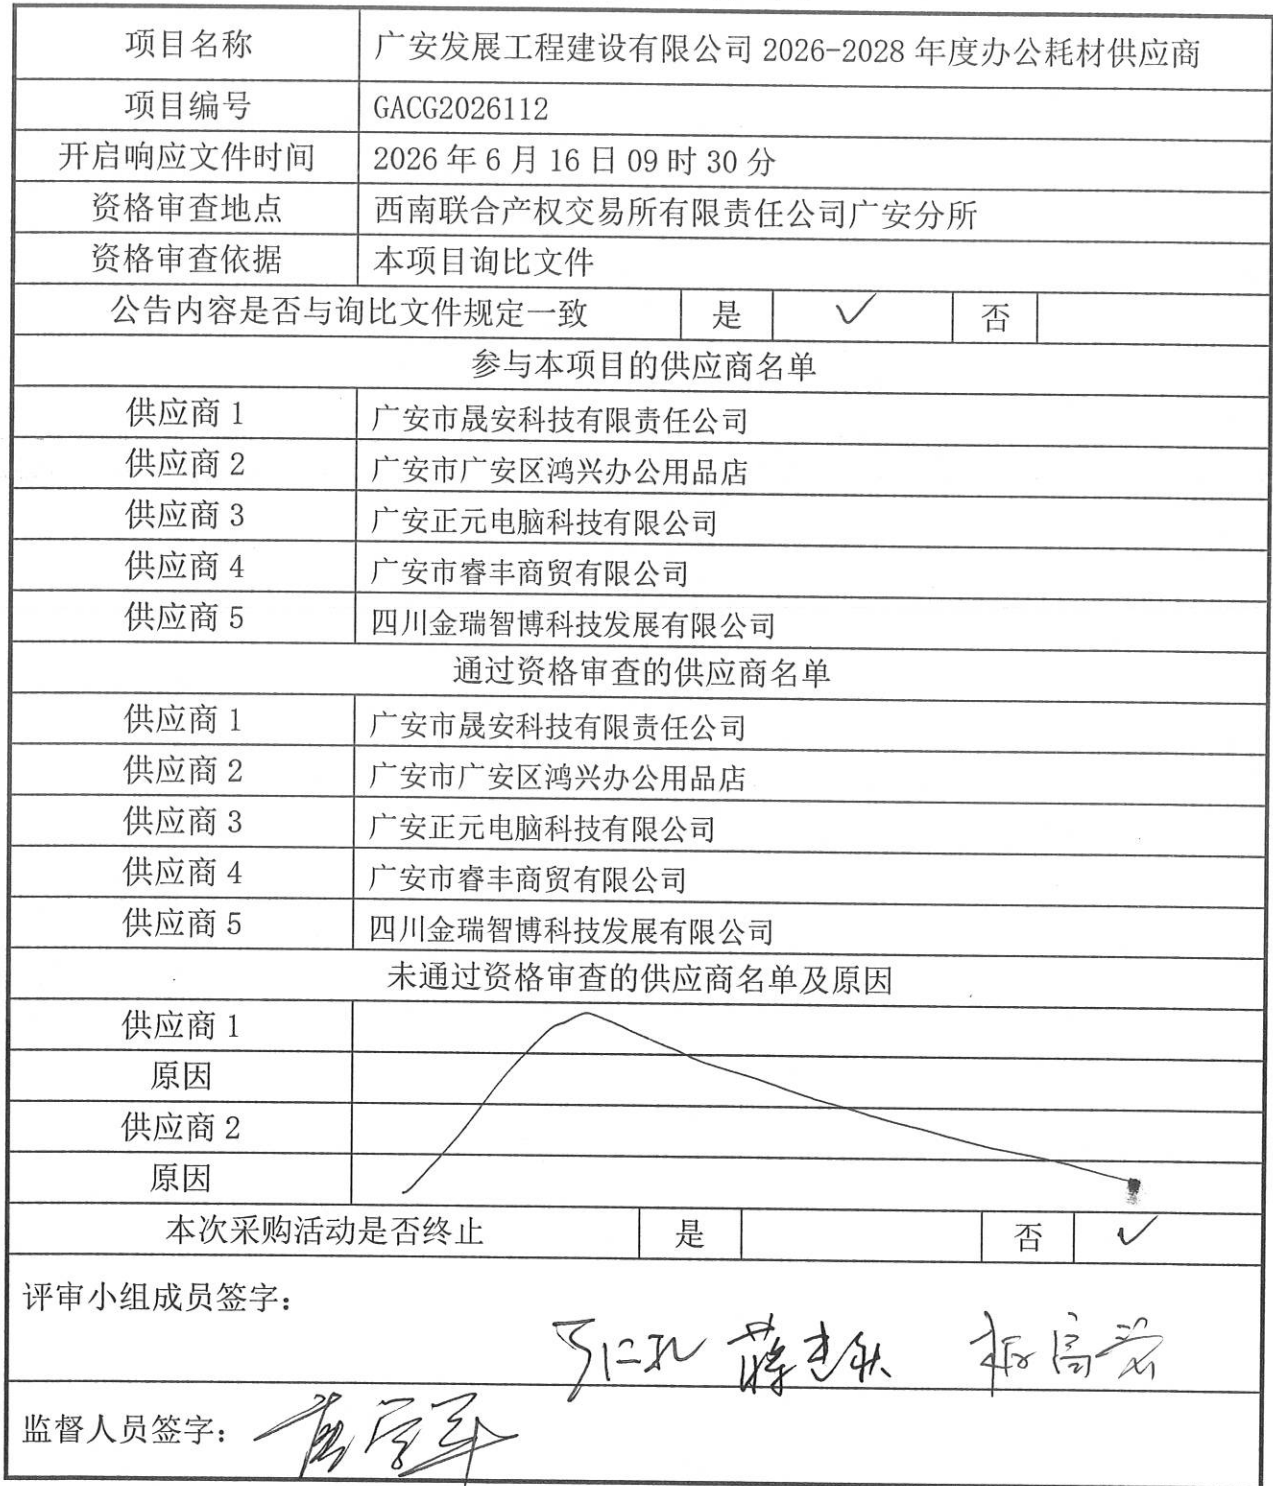 项目名称 广安发展工程建设有限公司 2026-2028 年度办公耗材供应商
项目编号 GACG2026112
开启响应文件时间 2026 年 6 月 16 日 09 时 30 分
资格审查地点 西南联合产权交易所有限责任公司广安分所
资格审查依据 本项目询比文件
公告内容是否与询比文件规定一致 是 ✓ 否
参与本项目的供应商名单
供应商 1 广安市晟安科技有限责任公司
供应商 2 广安市广安区鸿兴办公用品店
供应商 3 广安正元电脑科技有限公司
供应商 4 广安市睿丰商贸有限公司
供应商 5 四川金瑞智博科技发展有限公司
通过资格审查的供应商名单
供应商 1 广安市晟安科技有限责任公司
供应商 2 广安市广安区鸿兴办公用品店
供应商 3 广安正元电脑科技有限公司
供应商 4 广安市睿丰商贸有限公司
供应商 5 四川金瑞智博科技发展有限公司
未通过资格审查的供应商名单及原因
供应商 1
原因
供应商 2
原因
本次采购活动是否终止 是 否 ✓
评审小组成员签字：
监督人员签字：